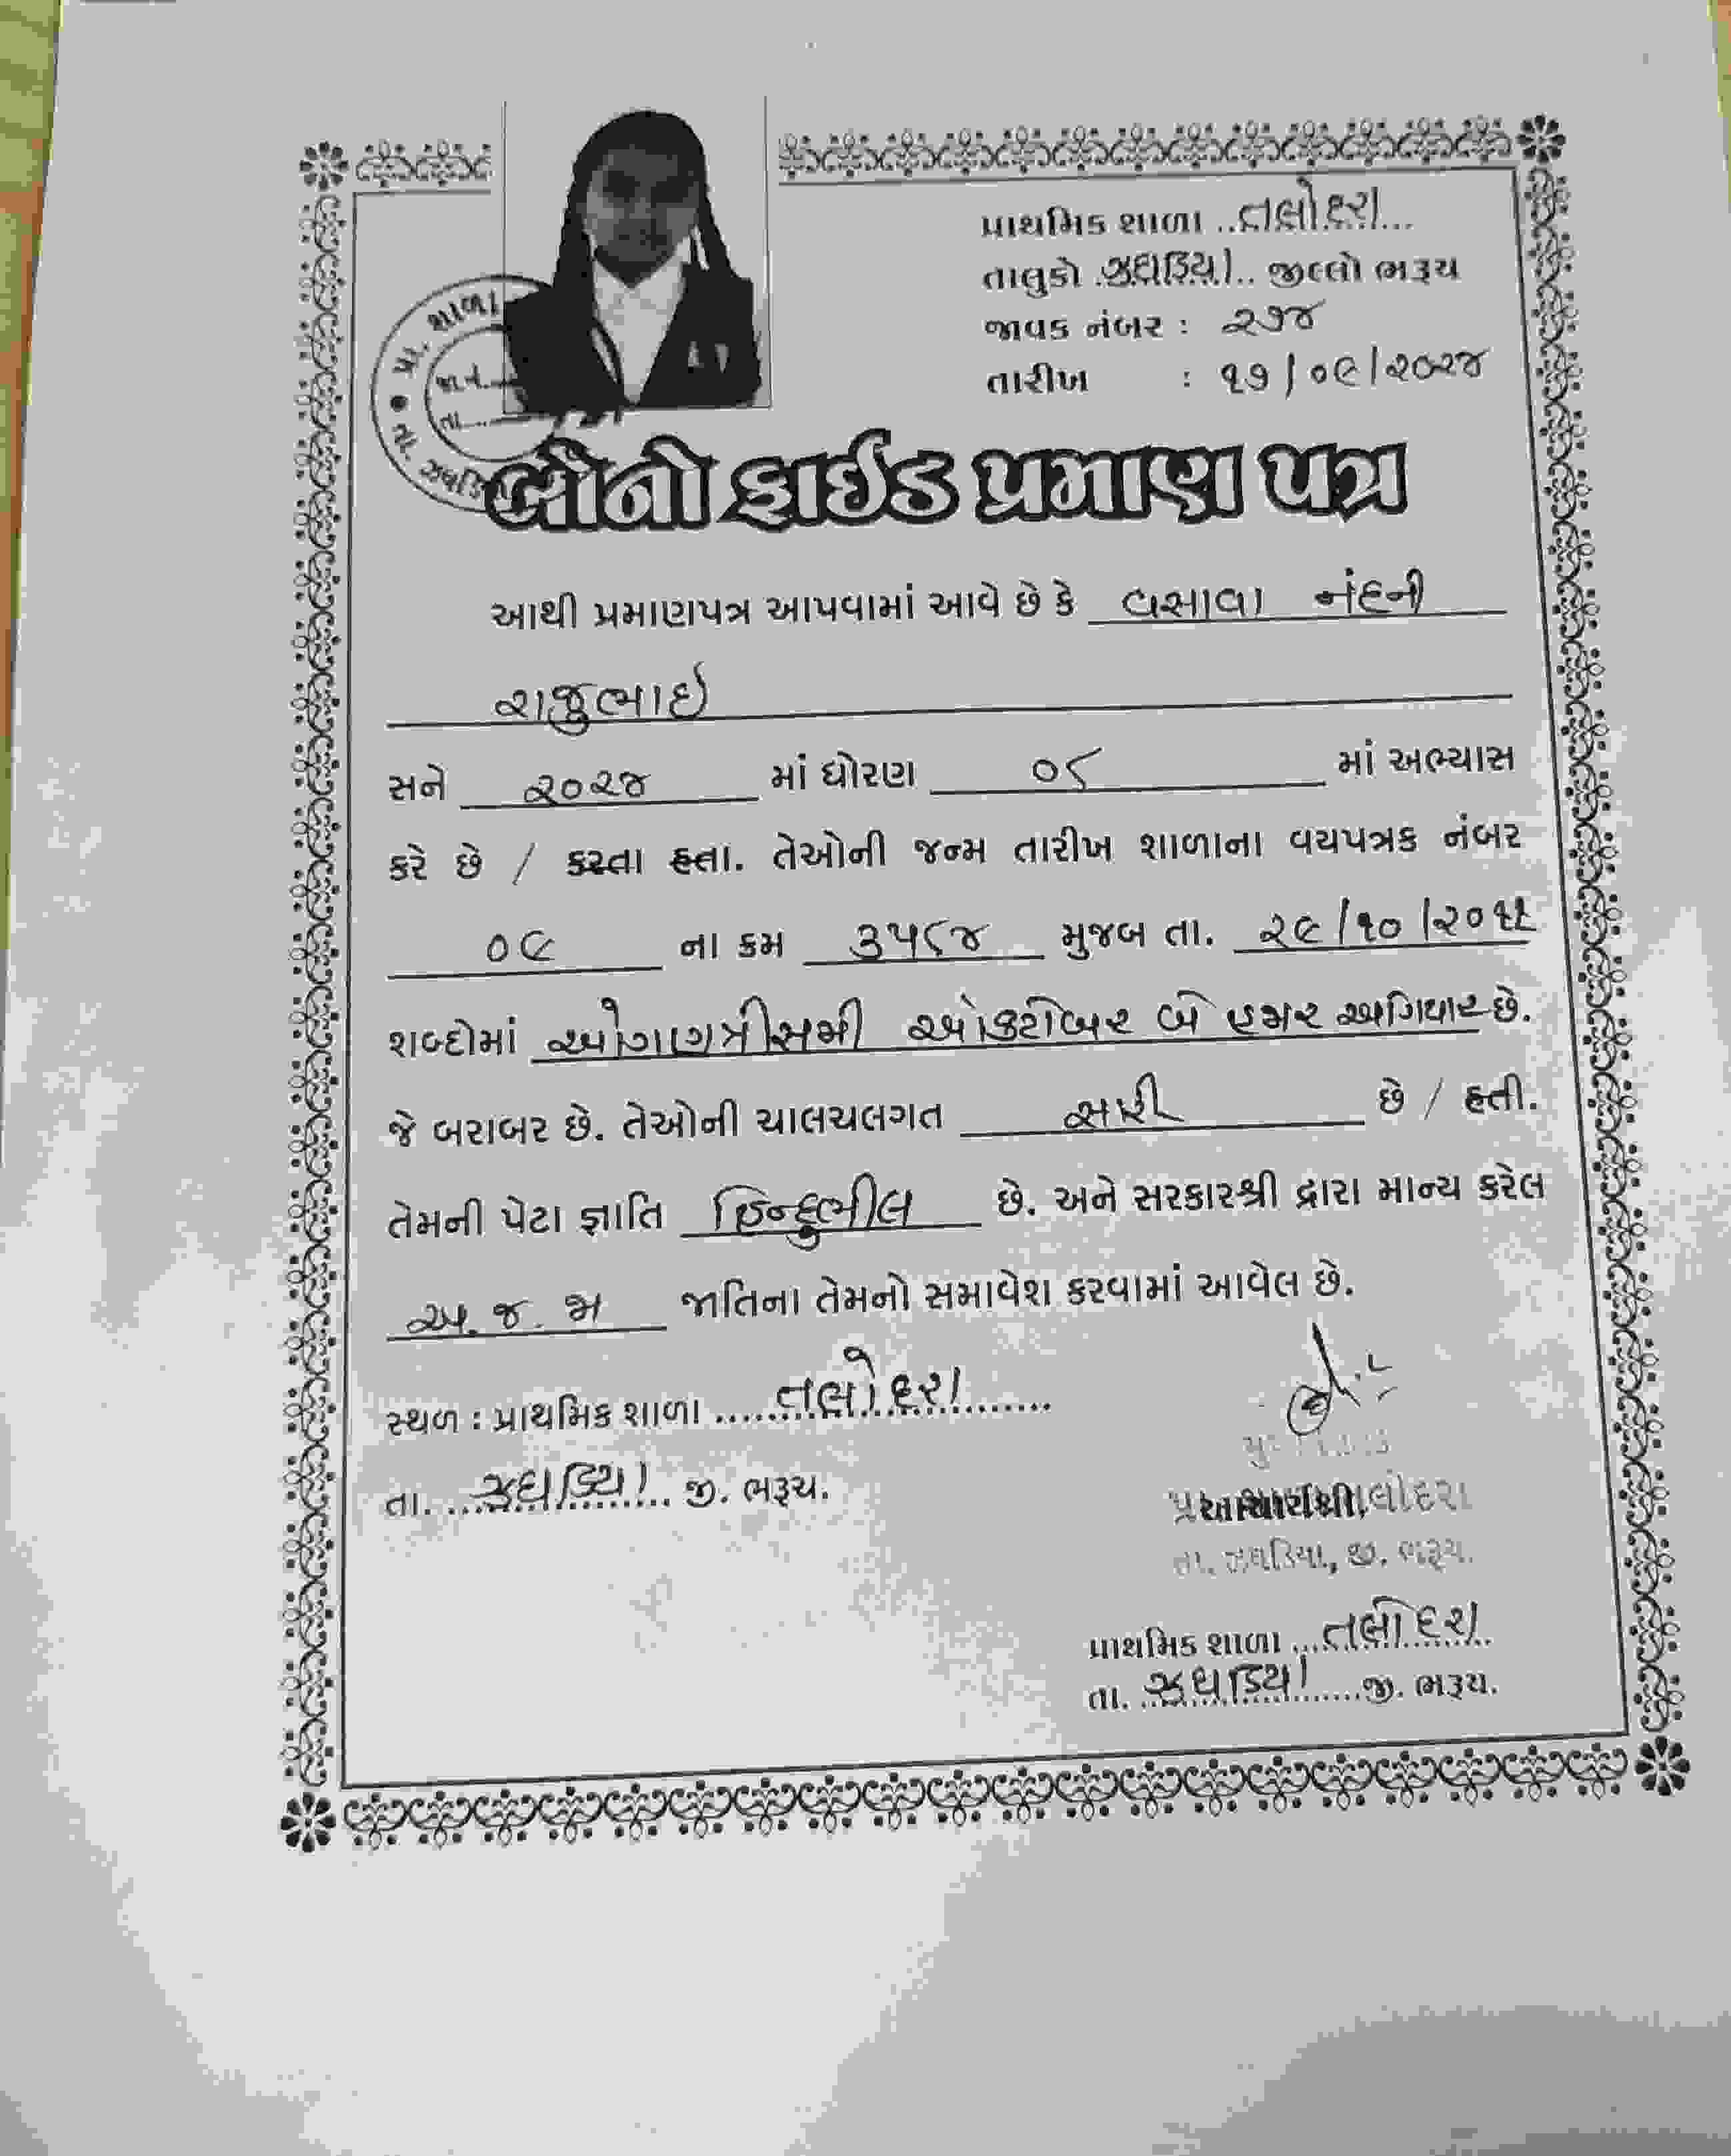 પ્રાથમિક શાળા ..તલોદરા...
તાલુકો .ઝઘડિયા.. જીલ્લો ભરૂચ
જાવક નંબર : ૨૭૪
તારીખ : ૧૭/૦૯/૨૦૨૪
પ્રા. શાળા
જા.નં.
તા.
તા. ઝઘડિ
બોનોફાઈડ પ્રમાણ પત્ર
આથી પ્રમાણપત્ર આપવામાં આવે છે કે વસાવા નંદની
રાજુભાઈ
સને ૨૦૨૪ માં ધોરણ ૦૮ માં અભ્યાસ
કરે છે / કરતા હતા. તેઓની જન્મ તારીખ શાળાના વયપત્રક નંબર
૦૯ ના ક્રમ ૩૫૮૪ મુજબ તા. ૨૯/૧૦/૨૦૧૧
શબ્દોમાં ઓગણત્રીસમી ઓક્ટોબર બે હજાર અગિયાર છે.
જે બરાબર છે. તેઓની ચાલચલગત સારી છે / હતી.
તેમની પેટા જ્ઞાતિ હિન્દુભીલ છે. અને સરકારશ્રી દ્વારા માન્ય કરેલ
અ. જ. જા જાતિના તેમનો સમાવેશ કરવામાં આવેલ છે.
સ્થળ : પ્રાથમિક શાળા ....તલોદરા....
તા. ...ઝઘડિયા... જી. ભરૂચ.
આચાર્યશ્રી,
તા. ઝઘડિયા, જી. ભરૂચ.
પ્રાથમિક શાળા ...તલોદરા...
તા. ...ઝઘડિયા...જી. ભરૂચ.